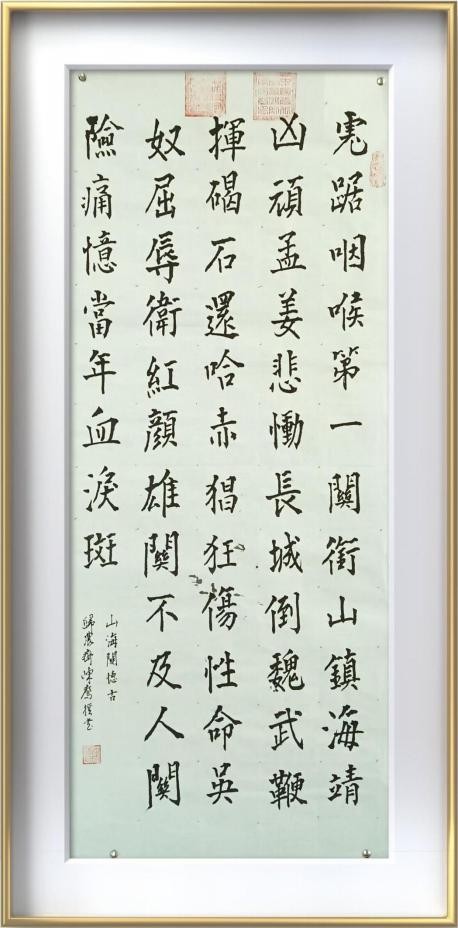 虎踞咽喉第一關銜山鎮海靖
凶頑孟姜悲慟長城倒魏武鞭
揮碣石還哈赤猖狂傷性命吳
奴屈辱衛紅顏雄關不及人關
險痛憶當年血淚斑
山海關憶古
歸農齋陳鷹撰書